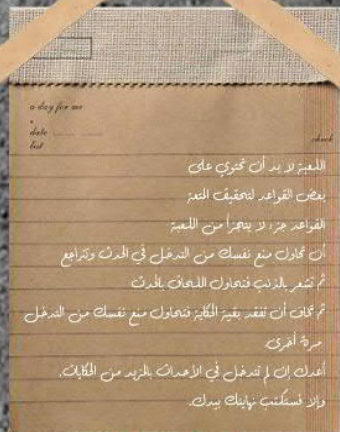 a day for me
date
list
check
اللعبة لا بد أن تحتوي على
بعض القواعد لتحقيق المتعة
القواعد جزء لا يتجزأ من اللعبة
أن تحاول منع نفسك من التدخل في الحدث وتتراجع
ثم تشعر بالذنب فتحاول اللحاق بالحدث
ثم تخاف أن تفقد بقية الحكاية فتحاول منع نفسك من التدخل
مرة أخرى
أعدك إن لم تتدخل في الأحداث بالمزيد من الحكايات.
وإلا فستكتب نهايتك بيدك.